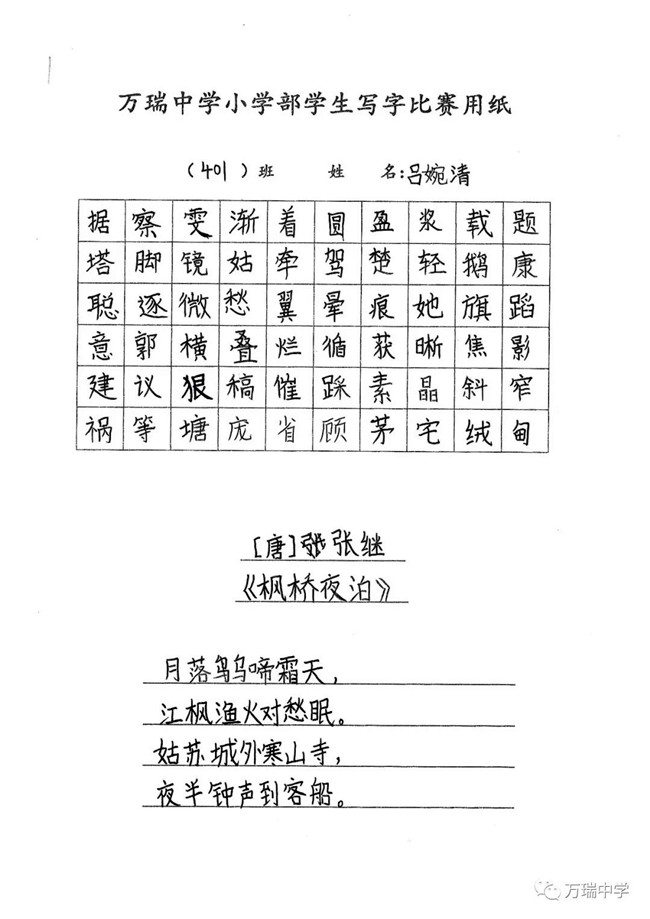 万瑞中学小学部学生写字比赛用纸
（401）班 姓 名:吕婉清
据 察 雯 渐 着 圆 盈 浆 载 题
塔 脚 镜 姑 牵 驾 楚 轻 鹅 康
聪 逐 微 愁 翼 晕 痕 她 旗 蹈
意 郭 横 叠 烂 循 获 晰 焦 影
建 议 狠 稿 催 踩 素 晶 斜 窄
祸 等 塘 庞 省 顾 茅 宅 绒 甸
[唐]张继
《枫桥夜泊》
月落乌啼霜天，
江枫渔火对愁眠。
姑苏城外寒山寺，
夜半钟声到客船。
万瑞中学